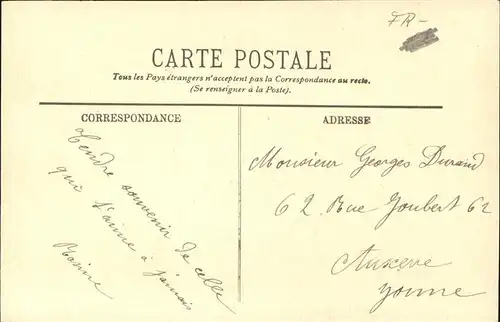 FR-
CARTE POSTALE
Tous les Pays étrangers n'acceptent pas la Correspondance au recto.
(Se renseigner à la Poste).
CORRESPONDANCE
Tendre souvenir de celle
qui t'aime à jamais
ADRESSE
Monsieur Georges Durand
62 Rue Joubert 62
Auxerre
Yonne